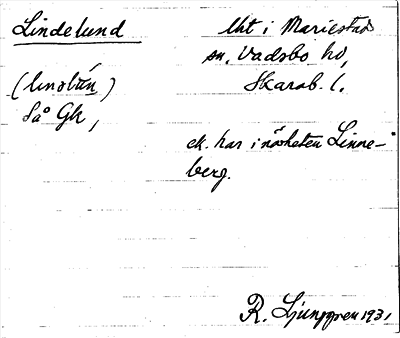 Lindelund
Uht i Mariestad
sn, Vadsbo hd,
Skarab. l.
(linəlún)
Så Gk,
ek. har i närheten Linne-
berg.
R. Ljunggren 1931